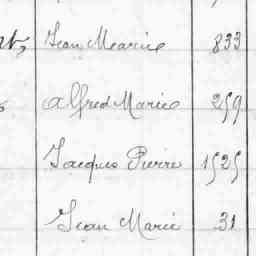 Jean Marie 833
Alfred Marie 259
Jacques Pierre 1525
Jean Marie 31